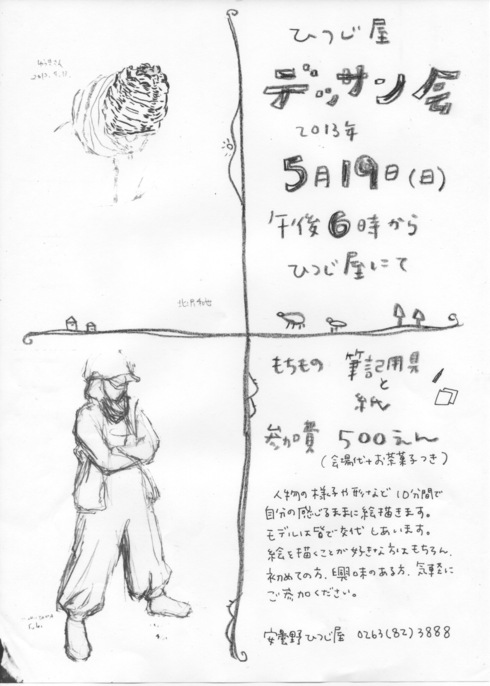 ひつじ屋
デッサン会
2013年
5月19日(日)
午後6時から
ひつじ屋にて
もちもの 筆記用具
と
紙
参加費 500えん
(会場代+お茶菓子つき)
人物の様子や形など 10分間で
自分の感じるままに絵描きます。
モデルは皆で交代しあいます。
絵を描くことが好きな方はもちろん、
初めての方、興味のある方、気軽に
ご参加ください。
安曇野ひつじ屋 0263(82)3888